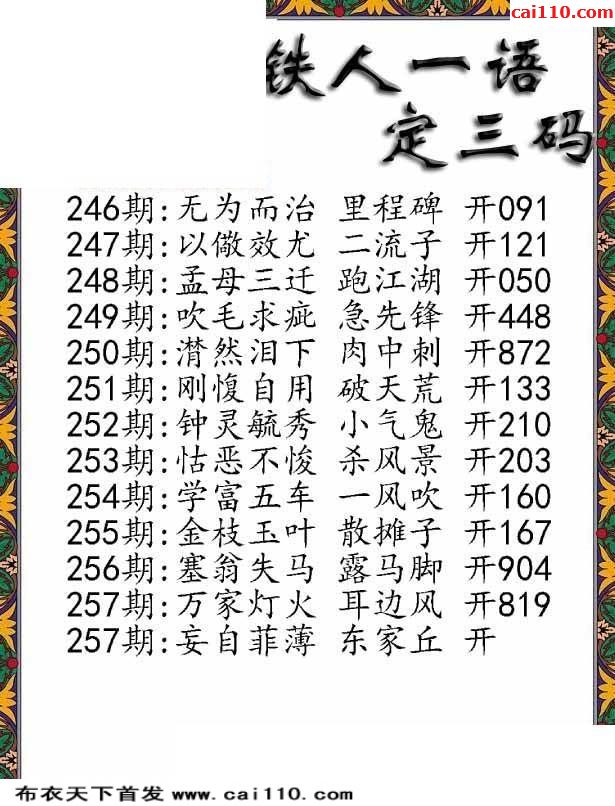 cai110.com
铁人一语
定三码
246期:无为而治 里程碑 开091
247期:以儆效尤 二流子 开121
248期:孟母三迁 跑江湖 开050
249期:吹毛求疵 急先锋 开448
250期:潸然泪下 肉中刺 开872
251期:刚愎自用 破天荒 开133
252期:钟灵毓秀 小气鬼 开210
253期:怙恶不悛 杀风景 开203
254期:学富五车 一风吹 开160
255期:金枝玉叶 散摊子 开167
256期:塞翁失马 露马脚 开904
257期:万家灯火 耳边风 开819
257期:妄自菲薄 东家丘 开
布衣天下首发 www.cai110.com